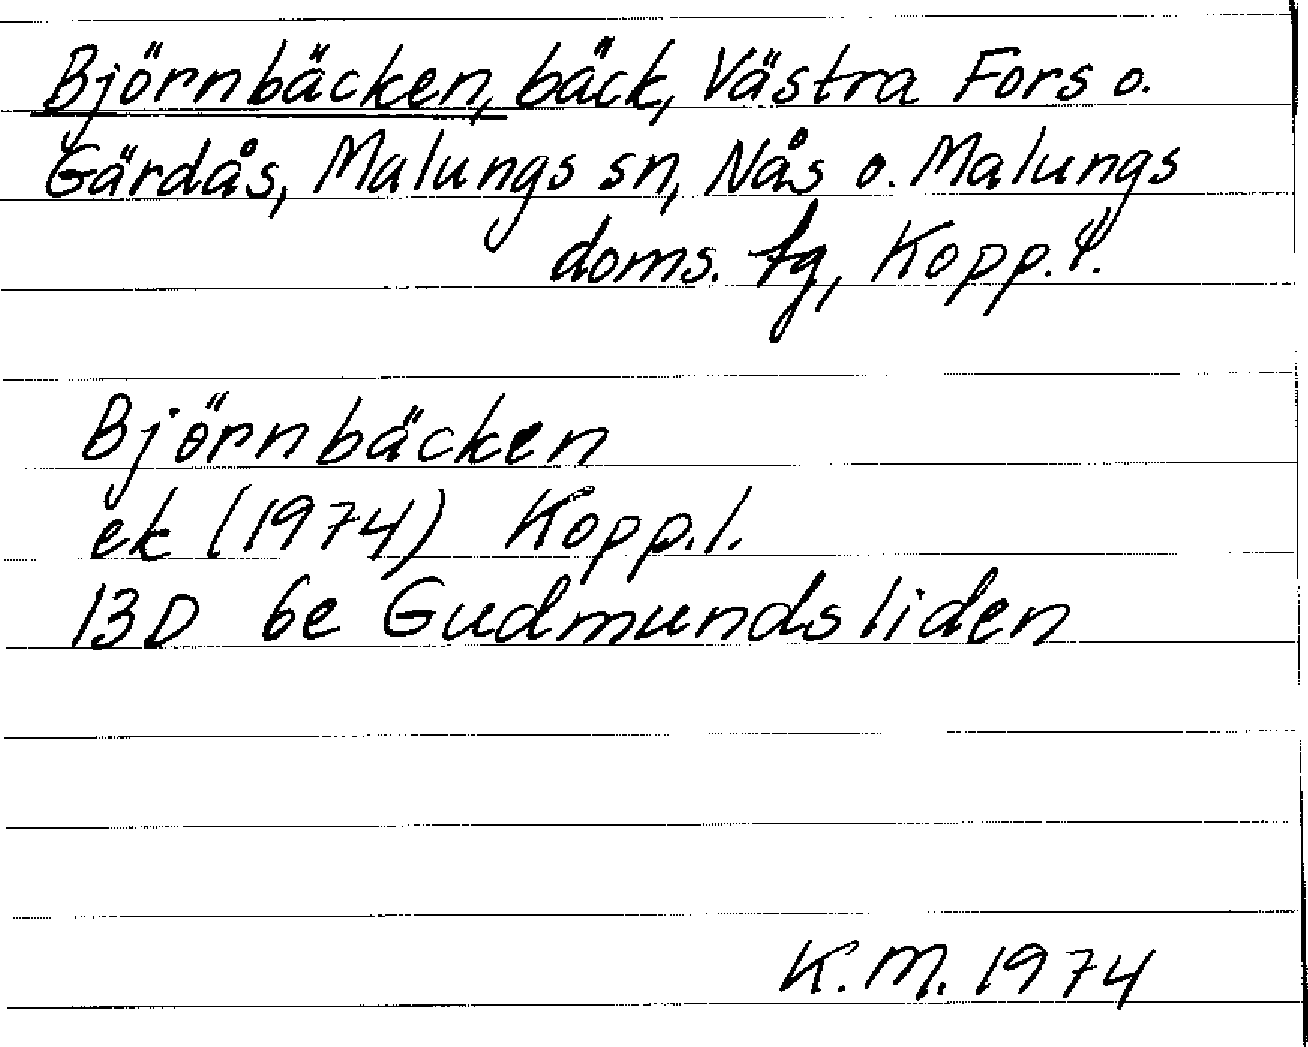 Björnbäcken, bäck, Västra Fors o.
Gärdås, Malungs sn, Nås o. Malungs
doms. tg, Kopp. l.
Björnbäcken
ek (1974) Kopp. l.
13D 6e Gudmundsliden
K.M. 1974